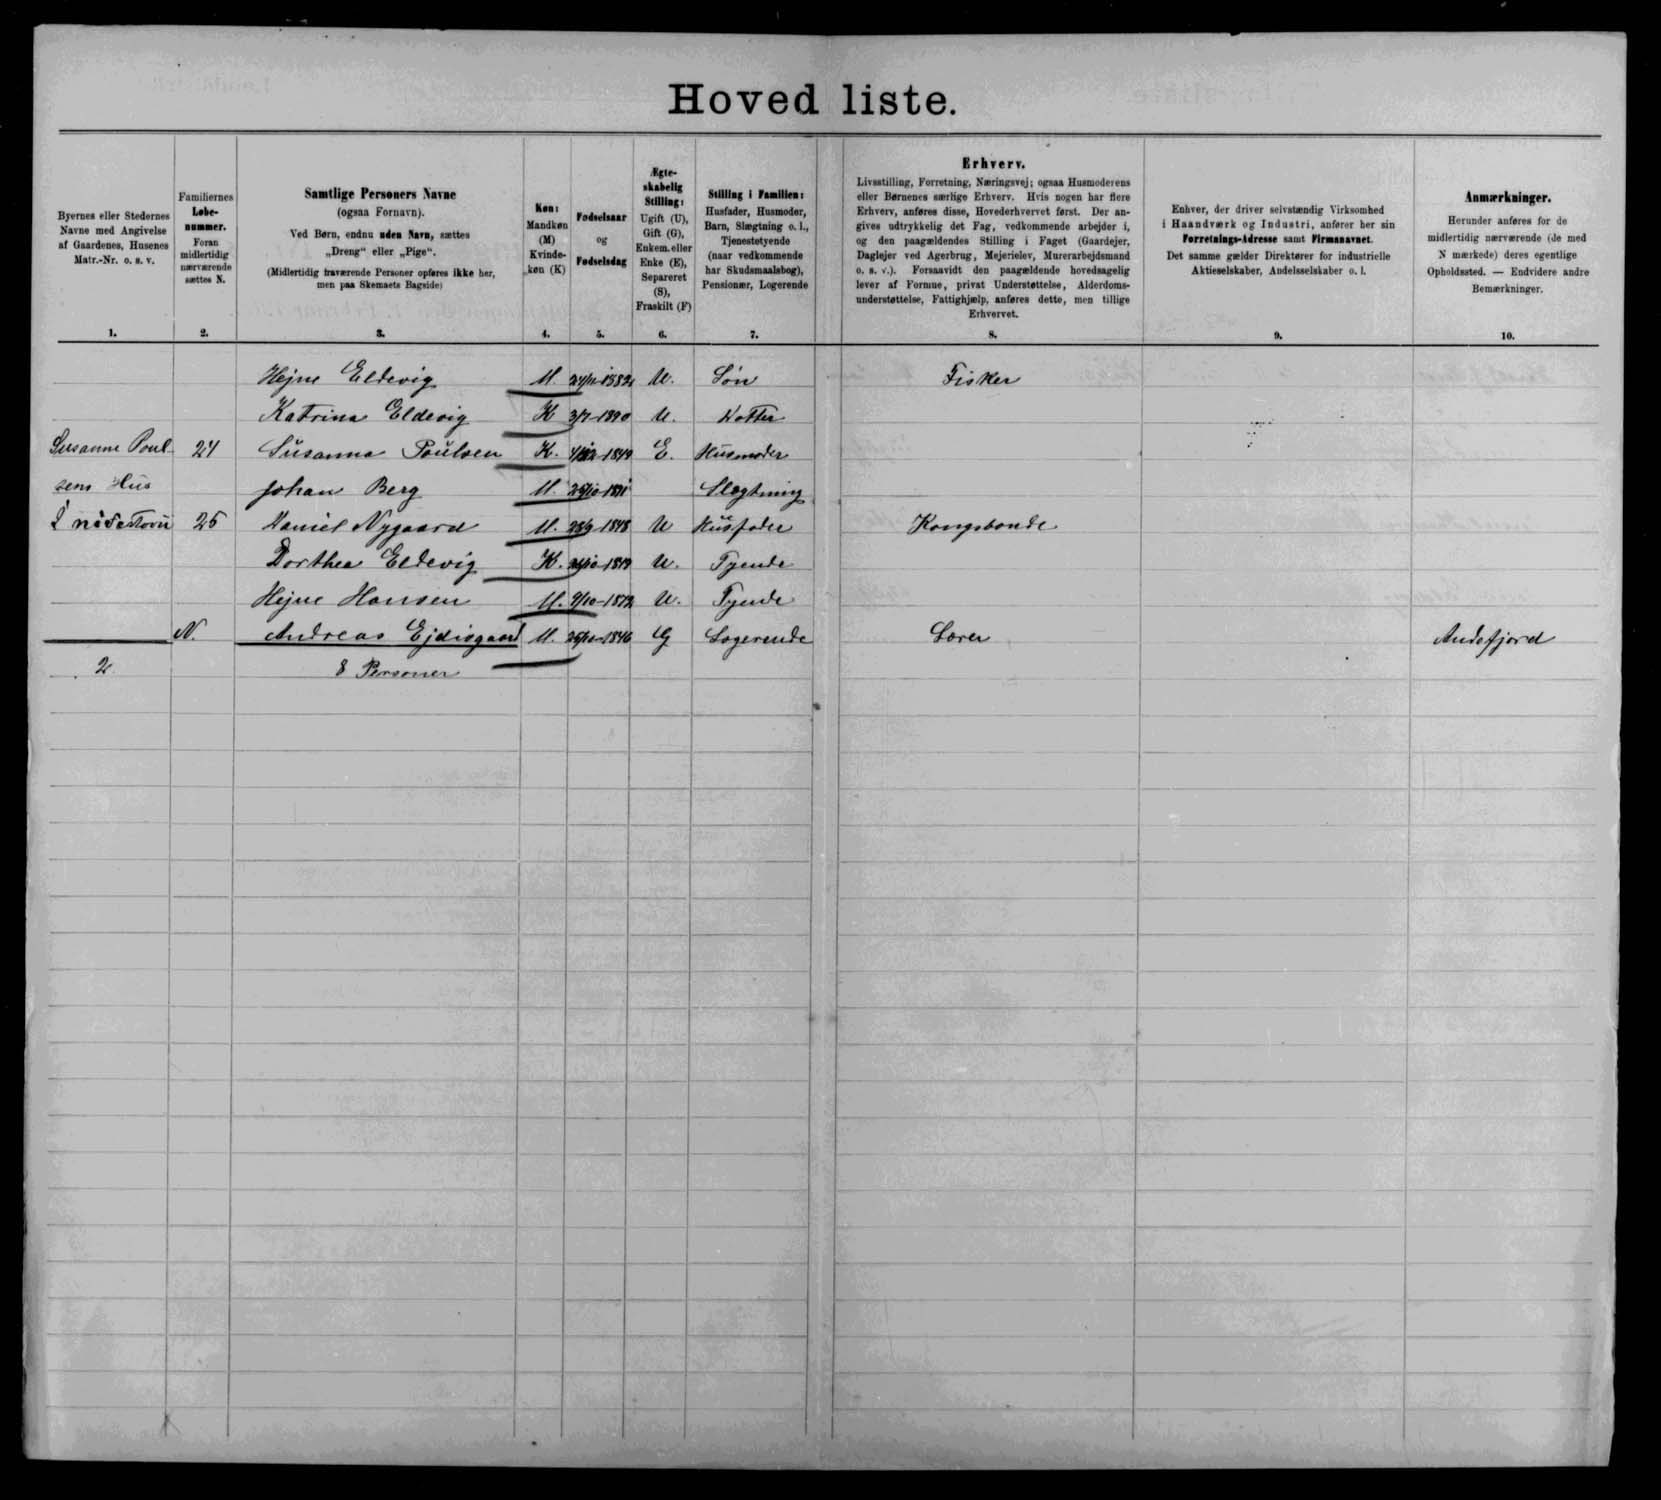 Hoved liste.
Byernes eller Stedernes
Navne med Angivelse
af Gaardenes, Husenes
Matr.-Nr. o. s. v.
1.
Familiernes
Løbe-
nummer.
Foran
midlertidig
nærværende
sættes N.
2.
Samtlige Personers Navne
(ogsaa Fornavn).
Ved Børn, endnu uden Navn, sættes
„Dreng“ eller „Pige“.
(Midlertidig fraværende Personer opføres ikke her,
men paa Skemaets Bagside)
3.
Køn:
Mandkøn
(M)
Kvinde-
køn (K)
4.
Fødselsaar
og
Fødselsdag
5.
Ægte-
skabelig
Stilling:
Ugift (U),
Gift (G),
Enkem. eller
Enke (E),
Separeret
(S),
Fraskilt (F)
6.
Stilling i Familien:
Husfader, Husmoder,
Barn, Slægtning o. l.,
Tjenestetyende
(naar vedkommende
har Skudsmaalsbog),
Pensionær, Logerende
7.
Erhverv.
Livsstilling, Forretning, Næringsvej; ogsaa Husmoderens
eller Børnenes særlige Erhverv. Hvis nogen har flere
Erhverv, anføres disse, Hovederhvervet først. Der an-
gives udtrykkelig det Fag, vedkommende arbejder i,
og den paagældendes Stilling i Faget (Gaardejer,
Daglejer ved Agerbrug, Mejerielev, Murerarbejdsmand
o. s. v.). Forsaavidt den paagældende hovedsagelig
lever af Formue, privat Understøttelse, Alderdoms-
understøttelse, Fattighjælp, anføres dette, men tillige
Erhvervet.
8.
Enhver, der driver selvstændig Virksomhed
i Haandværk og Industri, anfører her sin
Forretnings-Adresse samt Firmanavnet.
Det samme gælder Direktører for industrielle
Aktieselskaber, Andelsselskaber o. l.
9.
Anmærkninger.
Herunder anføres for de
midlertidig nærværende (de med
N mærkede) deres egentlige
Opholdssted. — Endvidere andre
Bemærkninger.
10.
Hejne Eldevig M. 1882 U. Søn Fisker
Katrina Eldevig K 3/7-1890 U. Datter
Susanne Poul 24 Susanna Poulsen K. 1849 E. Husmoder
sens Hus Johan Berg M. Slægtning
25 Daniel Nygaard M. 1848 U Husfader Kongsbonde
Dorthea Eldevig K. U. Tyende
Hejne Hansen M. 9/10-1872 U. Tyende
N. Andreas Ejdisgaard M. 1846 G Logerende Lærer Andefjord
2 8 Personer